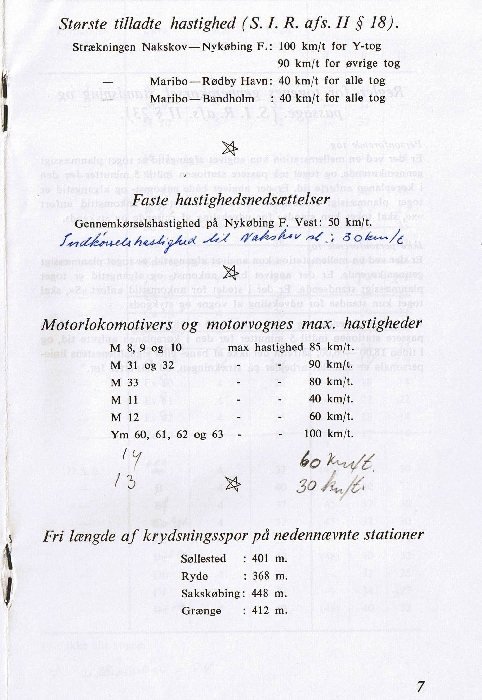 Største tilladte hastighed (S. I. R. afs. II § 18).
Strækningen Nakskov—Nykøbing F.: 100 km/t for Y-tog
90 km/t for øvrige tog
— Maribo—Rødby Havn: 40 km/t for alle tog
— Maribo—Bandholm : 40 km/t for alle tog
Faste hastighedsnedsættelser
Gennemkørselshastighed på Nykøbing F. Vest: 50 km/t.
Indkørselshastighed til Nakskov st.: 30 km/t
Motorlokomotivers og motorvognes max. hastigheder
M 8, 9 og 10 max hastighed 85 km/t.
M 31 og 32 - - 90 km/t.
M 33 - - 80 km/t.
M 11 - - 40 km/t.
M 12 - - 60 km/t.
Ym 60, 61, 62 og 63 - - 100 km/t.
14 60 km/t.
13 30 km/t.
Fri længde af krydsningsspor på nedennævnte stationer
Søllested : 401 m.
Ryde : 368 m.
Sakskøbing : 448 m.
Grænge : 412 m.
7